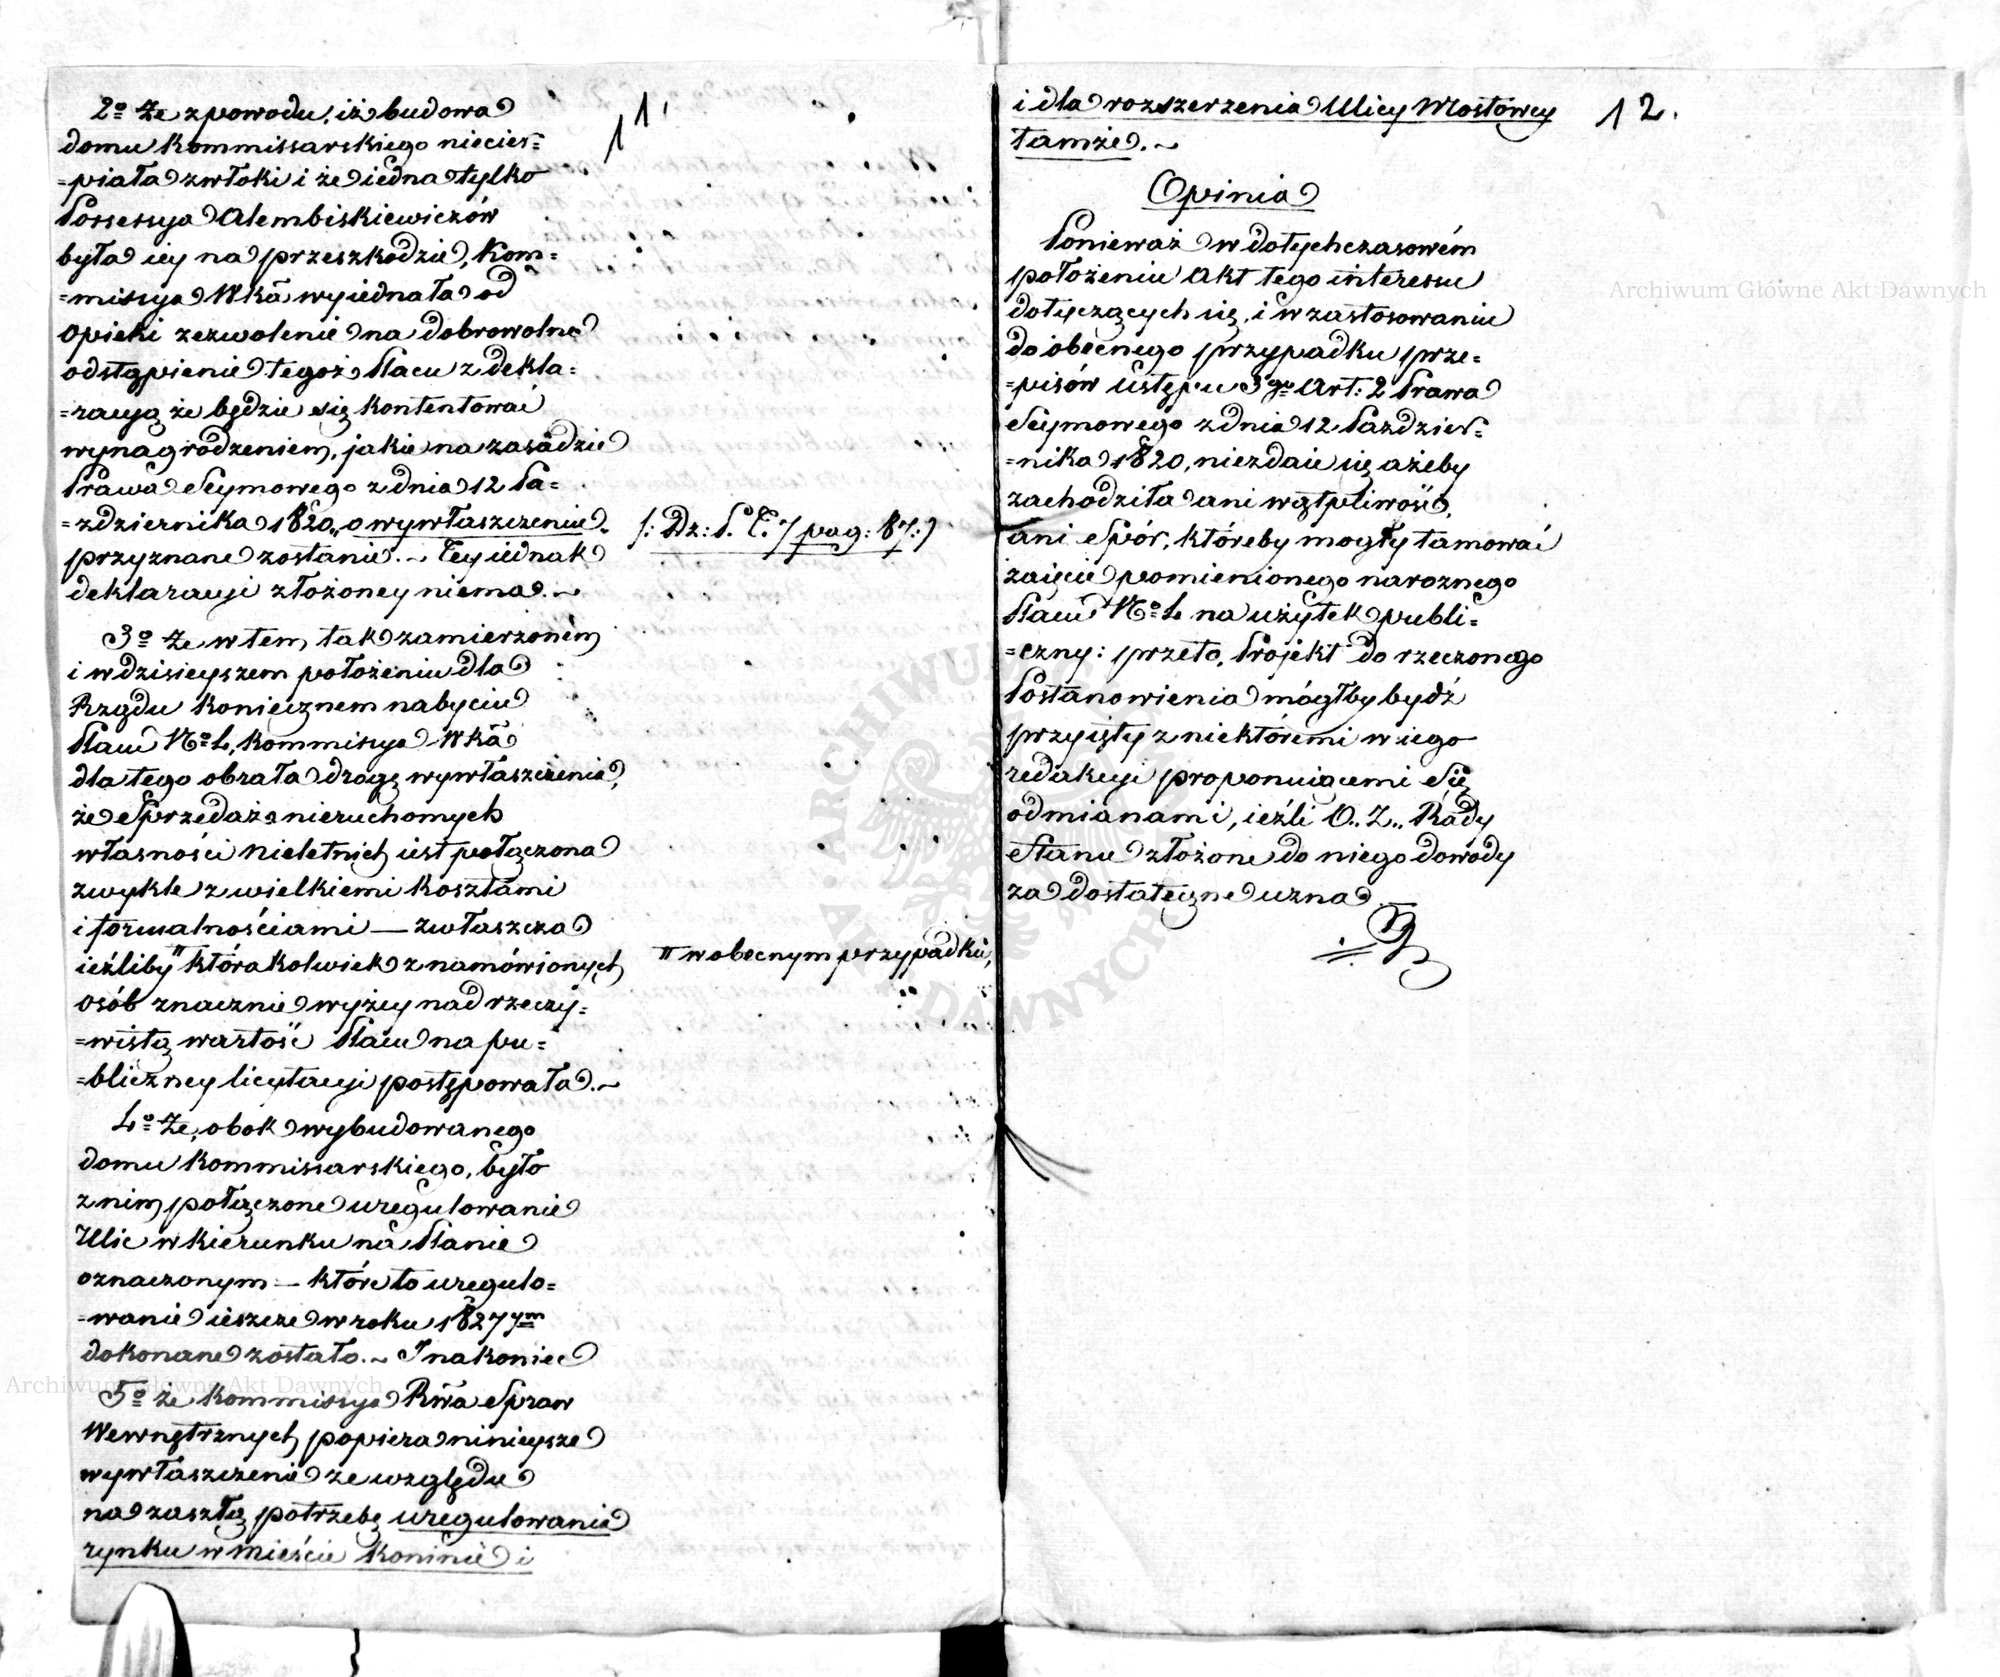 11.
2º Że z powodu, iż budowa
domu Kommissarskiego niecier=
=piała zwłoki i że iedna tylko
Possessya Alembiskiewiczów
była iey na przeszkodzie, Kom=
=missya Wka wyiednała od
Opieki zezwolenie na dobrowolne
odstąpienie tegoż Placu z dekla=
=racyą że będzie się kontentować
wynagrodzeniem, jakie na zasadzie
Prawa Seymowego z dnia 12 Pa=
=zdziernika 1820 „o wywłaszczeniu„
/: Dz: P. T. 7 pag: 87:/
przyznane zostanie. ~ Tey iednak
deklaracyi złożoney niema. ~
3º Że w tem, tak zamierzoném
i w dzisieyszem położeniu dla
Rządu koniecznem nabyciu
Placu Nº 4, Kommissya Wka
dla tego obrała drogę wywłaszczenia,
że Sprzedaż nieruchomych
własności Nieletnich iest połączona
zwykle z wielkiemi kosztami
i formalnościami — zwłaszcza
ieźliby " którakolwiek z namówionych
" w obecnym przypadku,
osób znacznie wyżey nad rzeczy=
=wistą wartość Placu na pu=
=bliczney licytacyi postępowała. ~
4º Że, obok wybudowanego
domu Kommissarskiego, było
z nim połączone uregulowanie
Ulic w kierunku na Planie
oznaczonym — które to uregulo=
=wanie ieszcze w roku 1827ym
dokonane zostało. ~ I nakoniec
5º że Kommissya Rwa Spraw
Wewnętrznych popiera ninieysze
wywłaszczenie ze względu
na zaszłą potrzebę uregulowania
rynku w mieście Koninie i
12.
i dla rozszerzenia Ulicy Mostowey
tamże. ~
Opinia
Ponieważ w dotychczasowém
położeniu Akt tego interesu
dotyczących się, i w zastosowaniu
do obecnego przypadku prze=
=pisów Ustępu 3go Art: 2 Prawa
Seymowego z dnia 12 Paździer=
=nika 1820, niezdaie się ażeby
zachodziła ani wątpliwość,
ani Spór, któreby mogły tamować
zaięcie pomienionego narożnego
Placu Nº 4 na użytek publi=
=czny: przeto, Projekt do rzeczonego
Postanowienia mógłby bydź
przyięty z niektóremi w iego
redakcyi proponuiącemi Się
odmianami, ieźli O.. Z.. Rady
Stanu złożone do niego dowody
za dostateczne uzna.